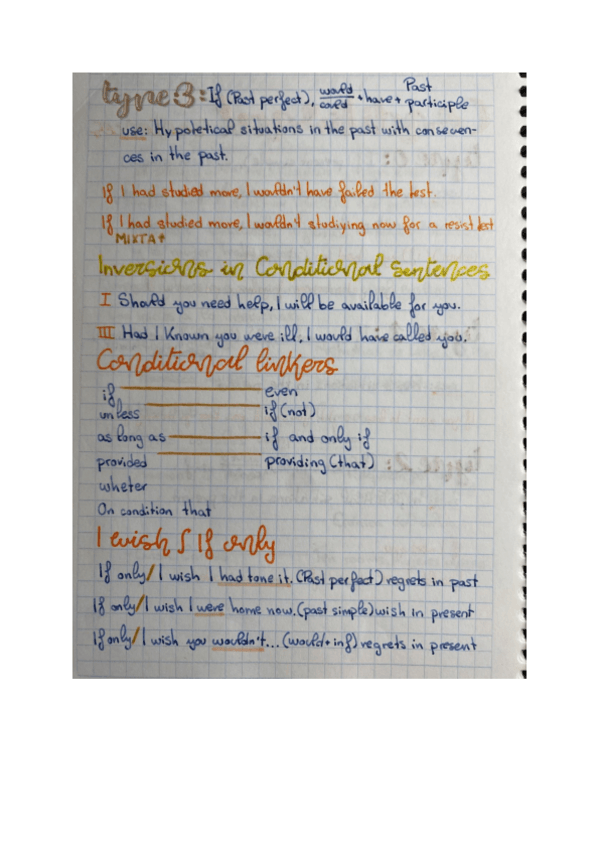 type 3: If (Past perfect), would/could + have + Past participle
use: Hypoletical situations in the past with consecuen-
ces in the past.
If I had studied more, I wouldn't have failed the test.
If I had studied more, I wouldn't studiying now for a resist test
MIXTA↑
Inversions in Conditional sentences
I Should you need help, I will be available for you.
III Had I Known you were ill, I would have called you.
Conditional linkers
if even
unless if (not)
as long as if and only if
provided providing (that)
wheter
On condition that
I wish / If only
If only/I wish I had tone it. (Past perfect) regrets in past
If only/I wish I were home now. (past simple) wish in present
If only/I wish you wouldn't... (would + inf) regrets in present